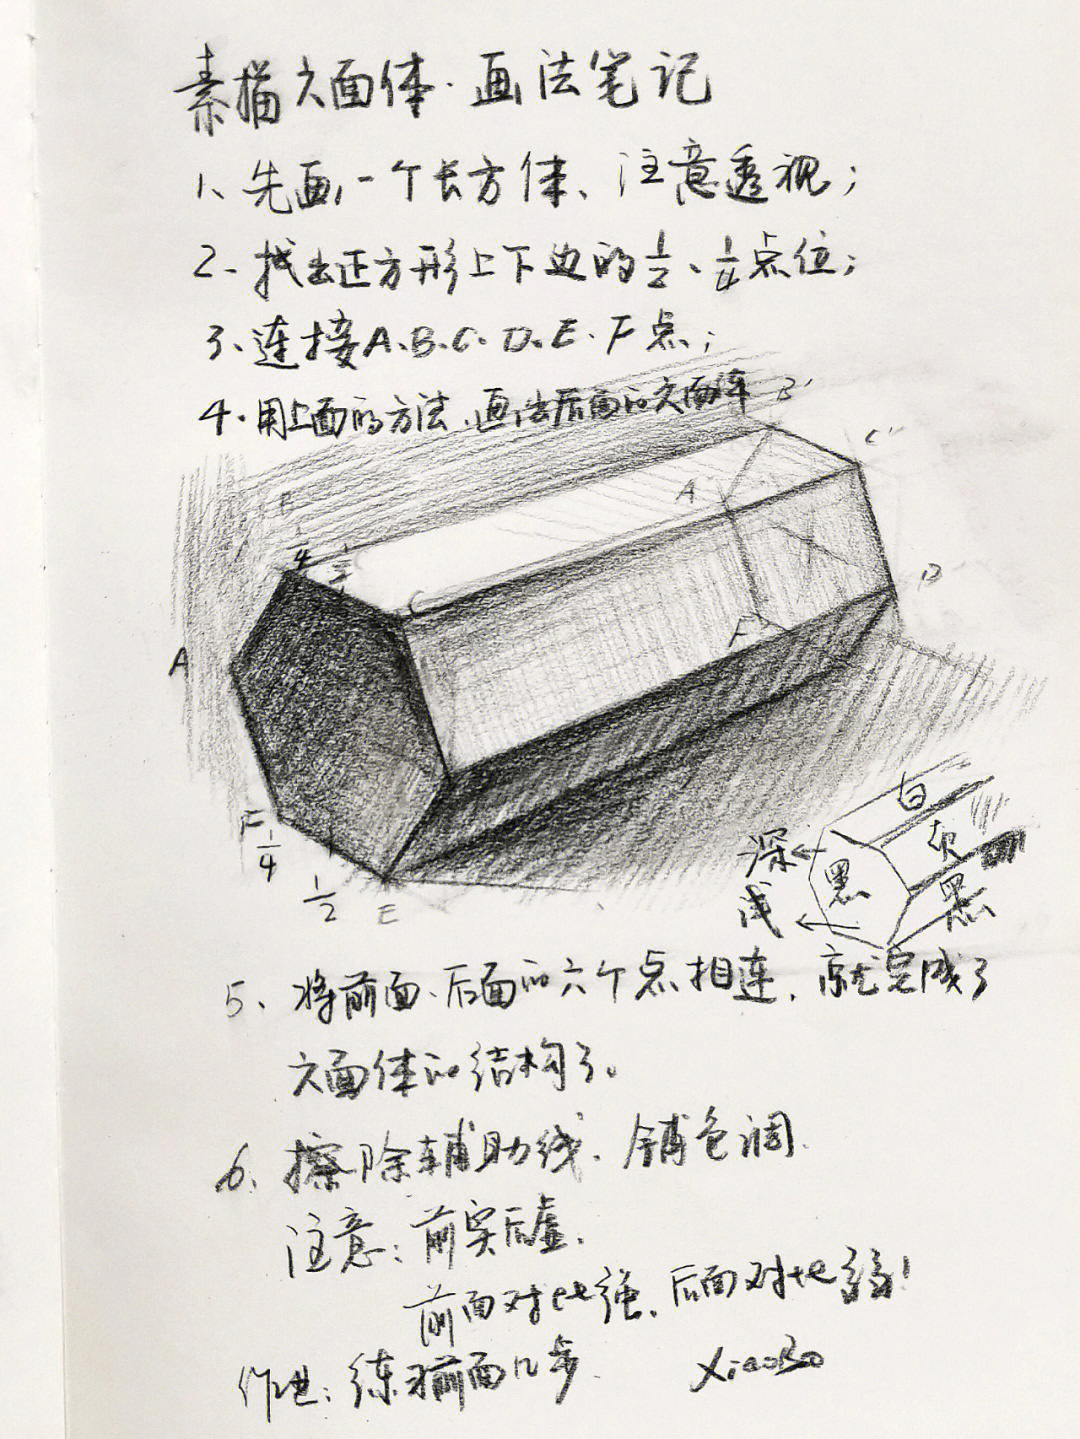 素描六面体·画法笔记
1、先画一个长方体、注意透视；
2、找出正方形上下边的1/2、1/4点位；
3、连接A、B、C、D、E、F点；
4、用上面的方法、画出后面的六面体
B'
C'
A'
B
1/4
1/2
C
D'
F'
A
F
1/4
1/2
E
白
灰
深
黑
黑
浅
5、将前面、后面的六个点相连，就完成了
六面体的结构了。
6、擦除辅助线、铺色调
注意：前实后虚、
前面对比强、后面对比弱！
作业：练习前面几步
XiaoBo